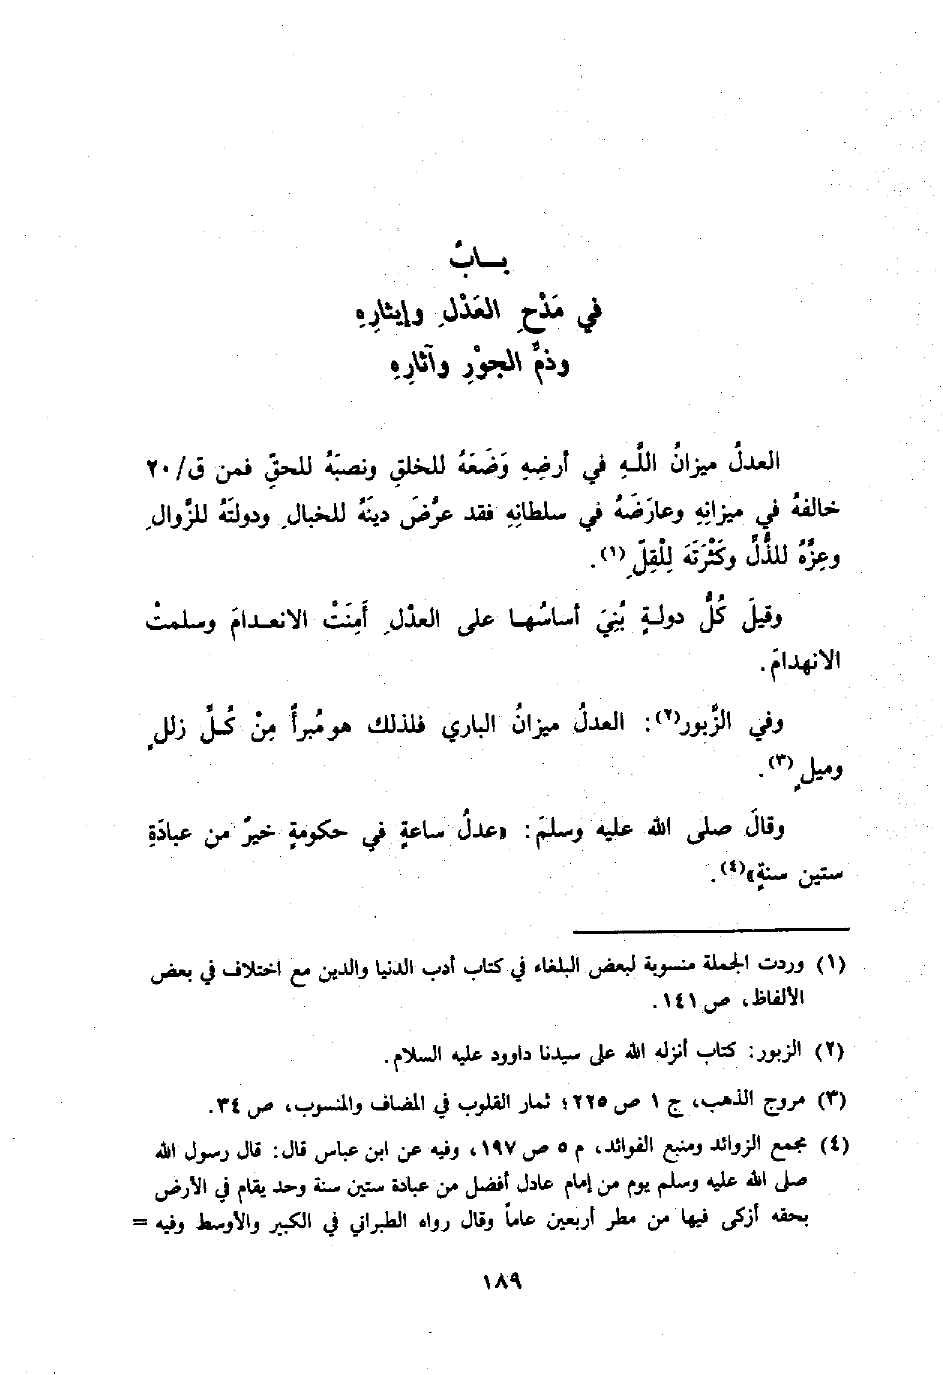 بـــابٌ
في مَدْحِ العَدْلِ وإيثارِهِ
وذمِّ الجوْرِ وآثارِهِ
العدلُ ميزانُ اللَّـهِ في أرضِهِ وَضَعَهُ للخلقِ ونصبَهُ للحقِّ فمن ق/٢٠
خالفهُ في ميزانِهِ وعارَضَهُ في سلطانِهِ فقد عرَّضَ دينَهُ للخبالِ ودولتَهُ للزَّوالِ
وعِزَّهُ للذُّلِّ وكَثْرَتَهَ لِلْقِلِّ(١).
وقيلَ كُلُّ دولـةٍ بُنِيَ أساسُهـا على العدْلِ أَمِنَتْ الانعـدامَ وسلمتْ
الانهدامَ.
وفي الزَّبور(٢): العدلُ ميزانُ الباري فلذلك هو مُبرأٌ مِنْ كُـلِّ زللٍ
وميلٍ(٣).
وقالَ صلى الله عليه وسلمَ: «عدلُ ساعةٍ في حكومةٍ خيرٌ من عبادَةِ
ستين سنةٍ»(٤).
(١) وردت الجملة منسوبة لبعض البلغاء في كتاب أدب الدنيا والدين مع اختلاف في بعض
الألفاظ، ص ١٤١.
(٢) الزبور: كتاب أنزله الله على سيدنا داوود عليه السلام.
(٣) مروج الذهب، ج ١ ص ٢٢٥؛ ثمار القلوب في المضاف والمنسوب، ص ٣٤.
(٤) مجمع الزوائد ومنبع الفوائد، م ٥ ص ١٩٧، وفيه عن ابن عباس قال: قال رسول الله
صلى الله عليه وسلم يوم من إمام عادل أفضل من عبادة ستين سنة وحد يقام في الأرض
بحقه أزكى فيها من مطر أربعين عاماً وقال رواه الطبراني في الكبير والأوسط وفيه =
١٨٩